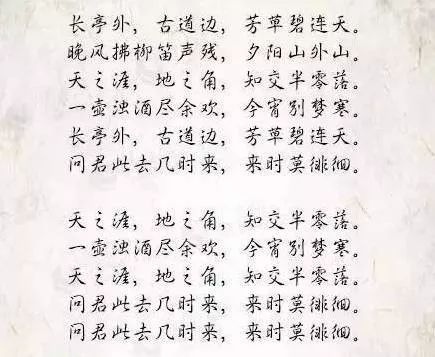 长亭外，古道边，芳草碧连天。
晚风拂柳笛声残，夕阳山外山。
天之涯，地之角，知交半零落。
一壶浊酒尽余欢，今宵别梦寒。
长亭外，古道边，芳草碧连天。
问君此去几时来，来时莫徘徊。
天之涯，地之角，知交半零落。
一壶浊酒尽余欢，今宵别梦寒。
天之涯，地之角，知交半零落。
问君此去几时来，来时莫徘徊。
问君此去几时来，来时莫徘徊。